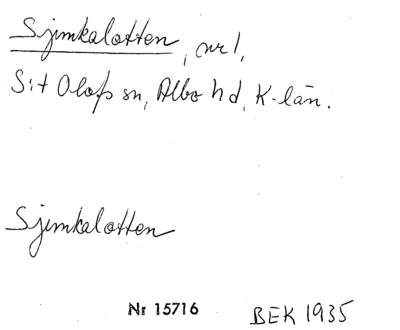 Sjimkalotten, nr 1,
S:t Olofs sn, Albo hd, K-län.
Sjimkalotten
Nr 15716 BEK 1935